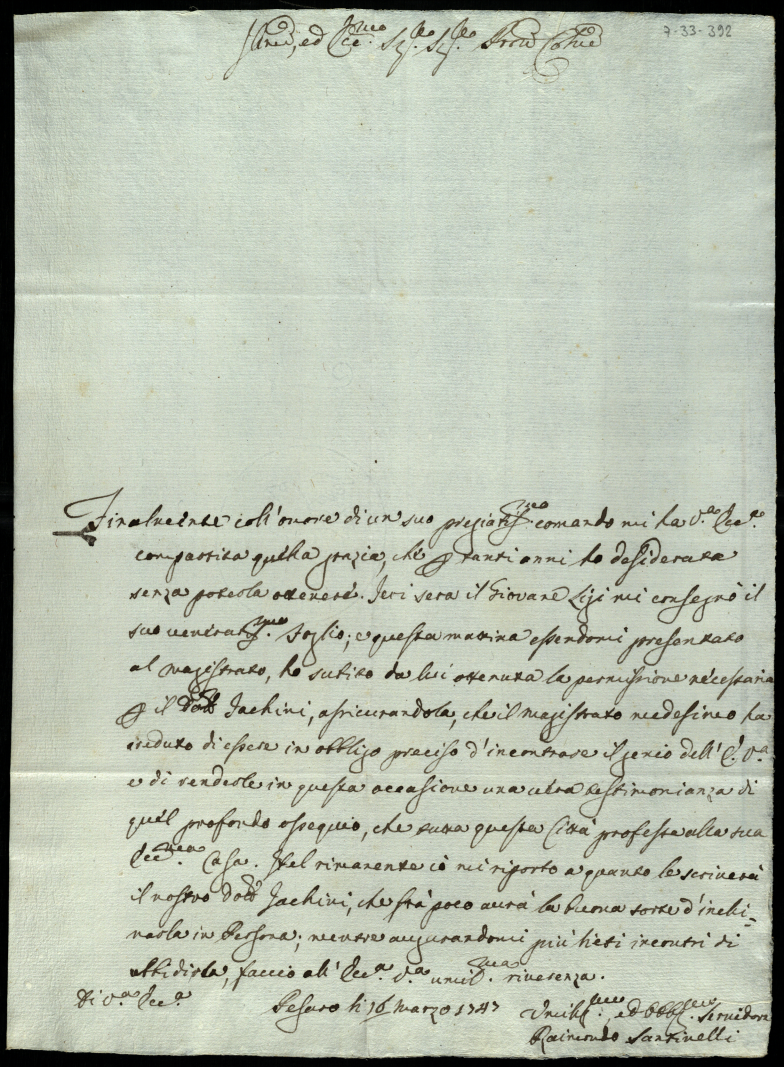 7-33-392
Ill.mo, ed Ecc.mo Sig.re Sig.re Pron Col.mo
Finalmente coll'onore di un suo pregiatiss.mo comando mi ha V.a Ecc.a
compartita quella grazia, che p tanti anni ho desiderata
senza poterla ottenere. Jeri sera il Giovane Ligi mi consegnò il
suo veneratiss.mo foglio; e questa mattina essendomi presentato
al Magistrato, ho subito da lui ottenuta la permissione necessaria
p il Dott.e Jachini, assicurandola, che il Magistrato medesimo ha
creduto di essere in obbligo preciso d'incontrare il genio dell'E. V.a
e di renderle in questa occasione una vera testimonianza di
quel profondo ossequio, che tutta questa Città professa alla sua
Ecc.ma Casa. Nel rimanente io mi riporto a quanto le scriverà
il nostro Dott.e Jachini, che frà poco aurà la buona sorte d'inchi=
narla in Persona; mentre augurandomi più lieti incontri di
ubbidirla, faccio all'Ecc.a V.a umil.ma riverenza.
Di V.a Ecc.a
Pesaro li 16 Marzo 1747
Umiliss.mo, ed Obblig.mo Servidore
Raimondo Santinelli